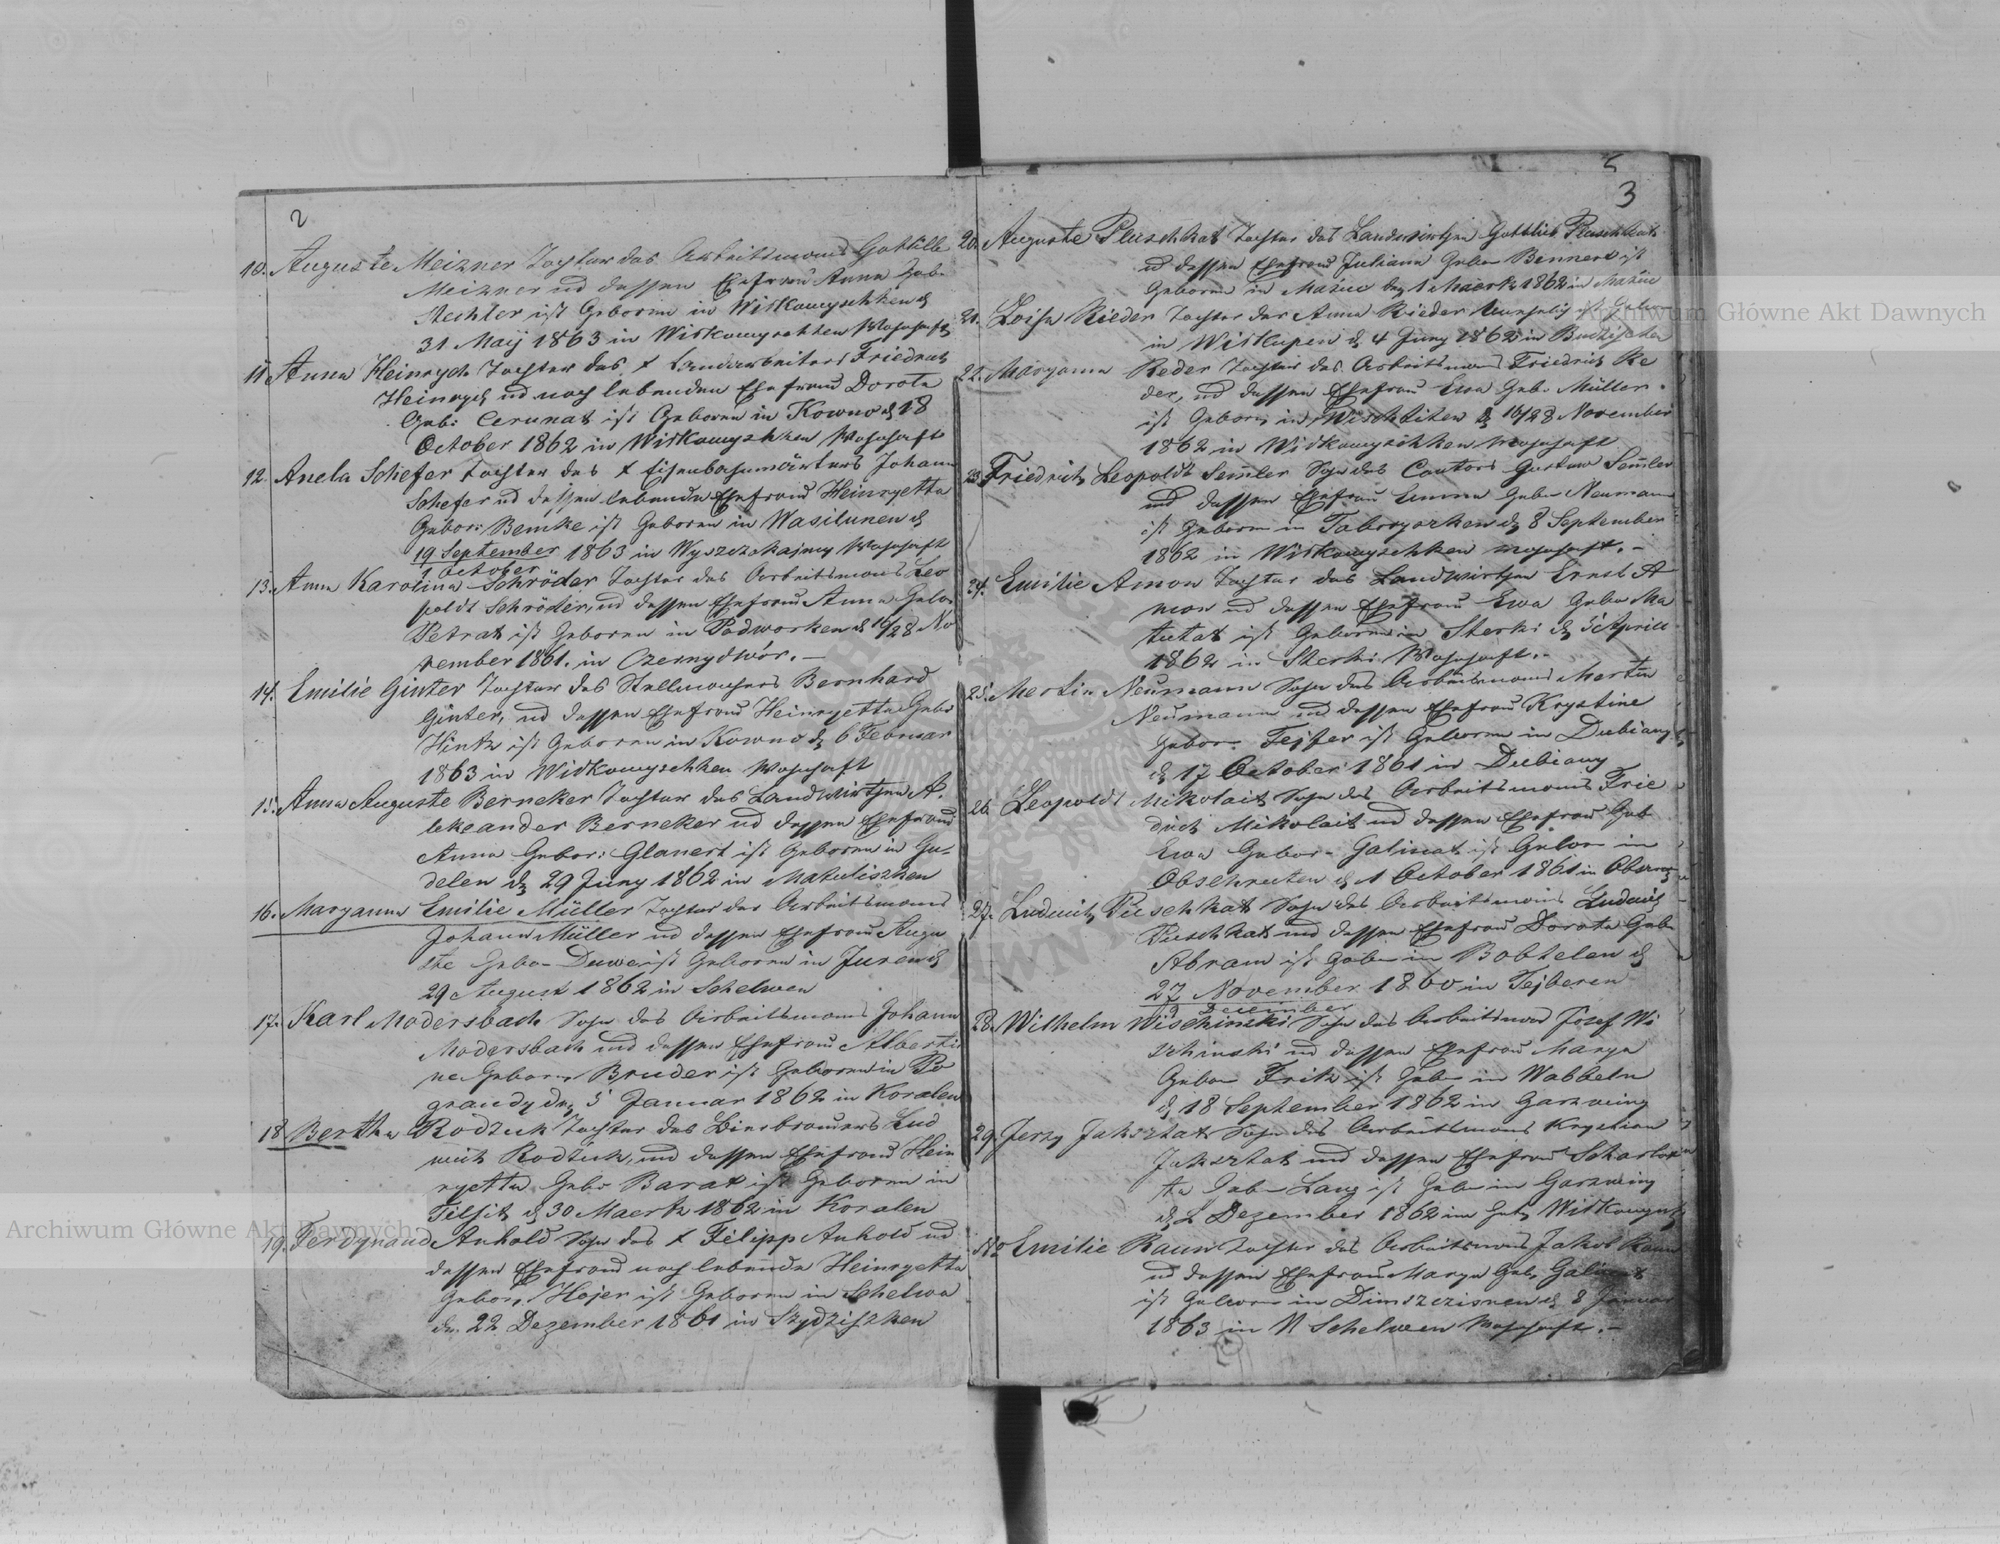 2
10. Auguste Meizner Tochter des Arbeitsmans Gottlib
Meizner und dessen Ehefrau Anna Geb.
Stechler ist Geboren in Wilkowyschken d
31 Maÿ 1863 in Wilkowyschken Wohnhaft
11. Anna Heinrych Tochter des † Landarbeiters Friedrich
Heinrych und noch lebenden Ehefrau Dorota
Geb: Cerunat ist Geboren in Kowno d 18
October 1862 in Wilkowyschken Wohnhaft
12. Anela Schefer Tochter des † Eisenbahnwärters Johann
Schefer und dessen lebende Ehefrau Heinryetta
Gebor: Bemke ist Geboren in Wasilunen d
19 September 1863 in Wyszczkajmy Wohnhaft
1 October
13. Anna Karolina Schröder Tochter des Arbeitsmans Leo
poldt Schröder, und dessen Ehefrau Anna Gebor
Petrat ist Geboren in Podworken d 16/28 No
vember 1861. in Czernydwór. —
14. Emilie Ginter Tochter des Stellmachers Bernhard
Ginter, und dessen Ehefrau Heinryetta Gebor
Hintz ist Geboren in Kowno d 6 Februar
1863 in Wilkowyschken Wohnhaft
15. Anna Auguste Berneker Tochter des Landwirthen A.
lekeander Berneker und dessen Ehefrau
Anna Gebor: Glanert ist Geboren in Gu-
delen d 29 Juny 1862 in Matuliszken
16. Maryanna Emilie Müller Tochter des Arbeitsmans
Johann Müller und dessen Ehefrau Augu
ste Gebo- Duwe ist Geboren in Juren d
29 August 1862 in Schelwen
17. Karl Modersbach Sohn des Arbeitsmans Johann
Modersbach und dessen Ehefrau Alberti
ne Gebor Bruder ist Geboren in Po
grandy d 5 Januar 1862 in Koralen
18 Bertha Rodzuk Tochter des Bierbrauers Lud
wich Rodzuk, und dessen Ehefrau Hein
ryetta Gebo Barat ist Geboren in
Tilsit d 30 Maertz 1862 in Koralen
19. Ferdynand Anhold Sohn des † Filipp Anhold und
dessen Ehefrau noch lebende Heinryetta
Gebor, Hojer ist Geboren in Schelwa
d. 22 Dezember 1861 in Szydziszken
5
3
20. Auguste Pluschkat Tochter des Landwirthen Gottlieb Pluschkat
und dessen Ehefrau Juliana Gebor Bennert ist
Geboren in Mazui d 1 Maertz 1862 in Mazui
21. Loisa Rieder Tochter der Anna Rieder Gebor
in Wilkupen d 4 Juny 1862 in
22. Maryanna Reder Tochter des Arbeitsmans Friedrich Re
der, und dessen Ehefrau Ewa Geb. Müller.
ist Geboren in Wischtiten d 16/28 November
1862 in Wilkowyschken Wohnhaft
23 Friedrich Leopoldt Sem̄ler Sohn des Cantors Gustaw Sem̄ler
und dessen Ehefrau Emma Gebor Neumann
ist Geboren in Taboryszken d 8 September
1862 in Wilkowyschken wohnhaft. –
24. Emilie Amon Tochter des Landwirthen Ernst A
mon und dessen Ehefrau Ewa Gebor Ma
tutat ist Geboren in Sterki d 5 Aprill
1862 in Sterki Wohnhaft. –
25. Mertin Neumann Sohn des Arbeitsmans Mertin
Neumann und dessen Ehefrau Krystine
Gebor Fejfer ist Geboren in Dubiany
d 17 October 1861 in Dubiany
26 Leopoldt Mikolait Sohn des Arbeitsmans Frie
drich Mikolait und dessen Ehefrau Geb
Ewa Gebor- Galinat ist Gebor in
Obschruten d 1 October 1861 in
27. Ludwich Puschkat Sohn des Arbeitsmans Ludwich
Puschkat und dessen Ehefrau Dorota Geb-
Abram ist Geb in Bobtelen d
27 November 1860 in Tejberen
9 December
28. Wilhelm Wischinski Sohn des Arbeitsman Josef Wi
schinski und dessen Ehefrau Marya
Gebor Fritz ist Geb in Wabbeln
d 18 September 1862 in Garzwiny
29. Jerzy Jakszlat Sohn des Arbeitsmans Krystian
Jakszlat und dessen Ehefrau Scharlot
ta Geb- Lang ist Geb in Garzwiny
d 2 Dezember 1862 im Gut Wilkowyschk
Emilie Raun Tochter des Arbeitsmans Jakob Raun
und dessen Ehefrau Marya Geb. Galinat
ist Geboren in Dimszezisnen d 8 Januar
1863 in N Schelwen Wohnhaft. –
Archiwum Główne Akt Dawnych
Archiwum Główne Akt Dawnych